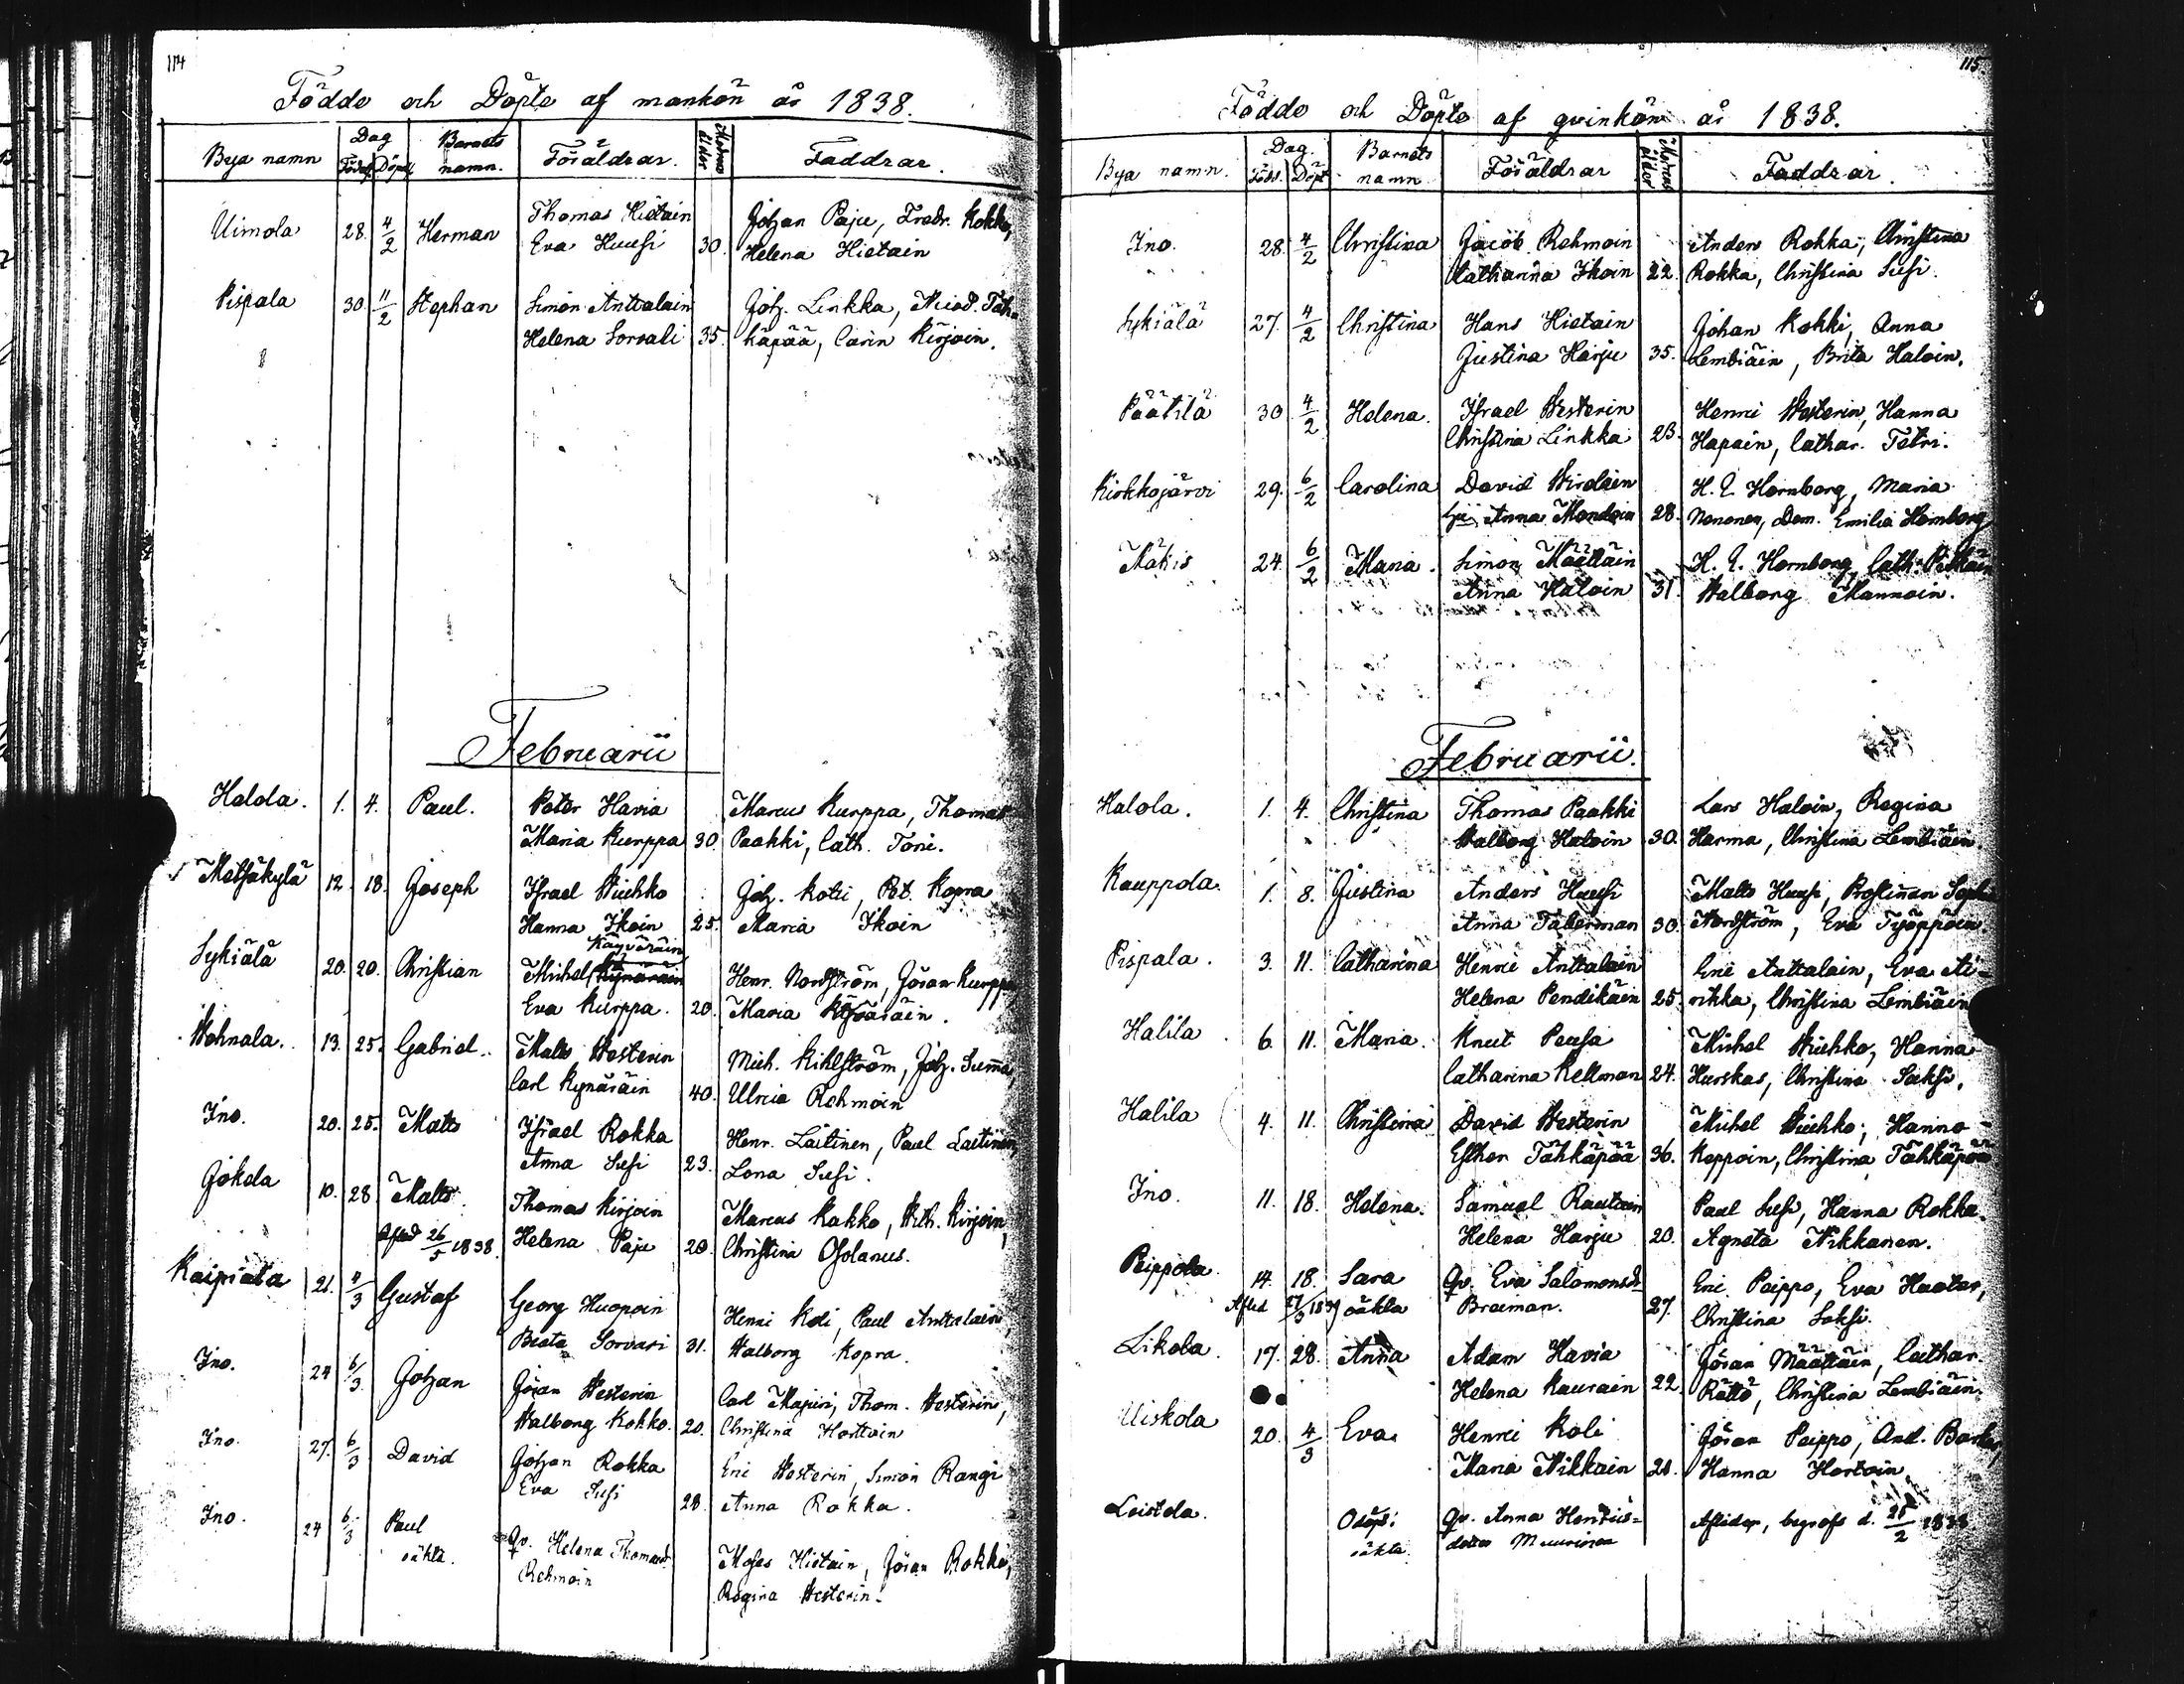 114
Födde och Döpte af mankön år 1838.
Bya namn Dag Födels Döpels Barnets namn. Föräldrar. Modrens ålder Faddrar.
Uimola 28. 4/2 Herman Thomas Hietain Johan Paju, Fredr. Kokko,
Eva Huusi 30. Helena Hietain
Pispala 30. 11/2 Stephan Simon Anttalain Joh. Linkka, Nicod. Täh-
Helena Sorvali 35. käpää, Carin Kirjoin.
Februarii
Halola. 1. 4. Paul. Peter Havia Marcus Kurppa, Thomas
Maria Kurppa 30. Paakki, Cath. Toni.
Metsäkylä 12. 18. Joseph Israel Wiehko Joh. Kotii, Pet. Kopra
Hanna Ikoin 25. Maria Ikoin
Käyväräin
Sykiälä 20. 20. Christian Michel Kynäräin Henr. Nordström, Jöran Kurppa
Eva Kurppa. 20. Maria Käyväräin.
Wohnala. 13. 25. Gabriel. Matts Westerin Mich. Kihlström, Joh. Suma,
Carl Kynäräin 40. Ulrica Rehmoin
Ino. 20. 25. Matts Israel Rokka Henr. Laitinen, Paul Laitinen,
Anna Susi 23. Lena Susi.
Jokela 10. 28 Matts Thomas Kirjoin Marcus Kakko, Wilh. Kirjoin,
Afled 26/5 1838. Helena Paju 20. Christina Osolanus.
Kaipiala 21. 4/3 Gustaf Georg Huopoin Henric Koli, Paul Anttalain,
Beata Sorvari 31. Walborg Kopra.
Ino. 24 6/3 Johan Jöran Westerin Carl Majuri, Thom. Westerin,
Walborg Kokko. 20. Christina Hortoin
Ino. 27. 6/3 David Johan Rokka Eric Westerin, Simon Rangi
Eva Susi 28. Anna Rokka.
Ino. 24 6/3 Paul Qv. Helena Thomasd. Moses Hietain, Jöran Rokka,
oäkta. Rehmoin Regina Westerin.
115.
Födde och Döpte af qvinkön år 1838.
Bya namn. Dag. Föds. Döpt Barnets namn Föräldrar Modrens ålder Faddrar.
Ino. 28. 4/2 Christina Jacob Rehmoin Anders Rokka, Christina
Catharina Ikoin 22. Rokka, Christina Susi.
Sykiälä 27. 4/2 Christina Hans Hietain Johan Kokki, Anna
Justina Harju 35. Lembiäin, Brita Haloin.
Päätilä 30 4/2 Helena. Israel Westerin Henric Westerin, Hanna
Christina Linkka 23. Hapain, Cathar. Tetri.
Kirkkojärvi 29. 6/2 Carolina David Wirolain H. E. Hornborg, Maria
Anna Mondoin 28. Nononen, Dem. Emilia Hornborg
Näkis 24. 6/2 Maria. Simon Määttäin H. E. Hornborg, Cath. Pitkäin
Anna Haloin 31. Walborg Mannoin.
Februarii.
Halola. 1. 4. Christina Thomas Paakki Lars Haloin, Regina
Walborg Haloin 30. Harma, Christina Lembiäin.
Kauppola. 1. 8. Justina Anders Huusi Matts Huusi, Prostinnan Soph.
Anna Taberman 30. Nordström, Eva Tyäppöin
Pispala. 3. 11. Catharina Henric Anttalain Eric Anttalain, Eva Ai-
Helena Pendikäin 25. rikka, Christina Lembiäin
Halila 6. 11. Maria. Knut Peusa Michel Wiehko, Hanna
Catharina Kellman 24. Hurskas, Christina Saksi.
Halila 4. 11. Christina David Westerin Michel Wiehko, Hanna
Esther Tähkäpää 36. Koppoin, Christina Tähkäpää
Ino. 11. 18. Helena. Samuel Rautain Paul Susi, Hanna Rokka.
Helena Harju 20. Agneta Nikkanen.
Peippola. 14. 18. Sara Qv. Eva Salomonsd. Eric Peippo, Eva Huotar,
Afled 27/3 1839 oäkta Braiman. 27. Christina Saksi.
Likola. 17. 28. Anna Adam Havia Jöran Määttäin, Cathar.
Helena Kaurain 22. Rättö, Christina Lembiäin.
Uiskola 20. 4/3 Eva. Henric Koli Jöran Peippo, And. Barka,
Maria Nikkain 21. Hanna Hortoin.
Leistola. Odöpt. Qv. Anna Henrics= Afliden, begrafs d. 25/2 1838
oäkta. dotter Muurinen